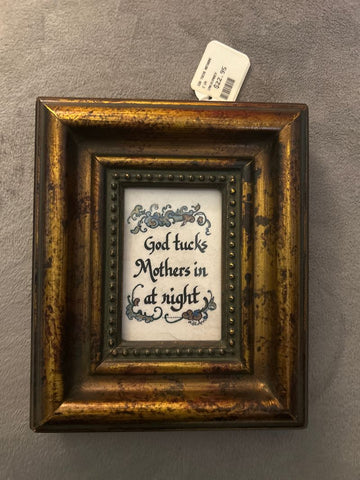 $22.95
God tucks
Mothers in
at night